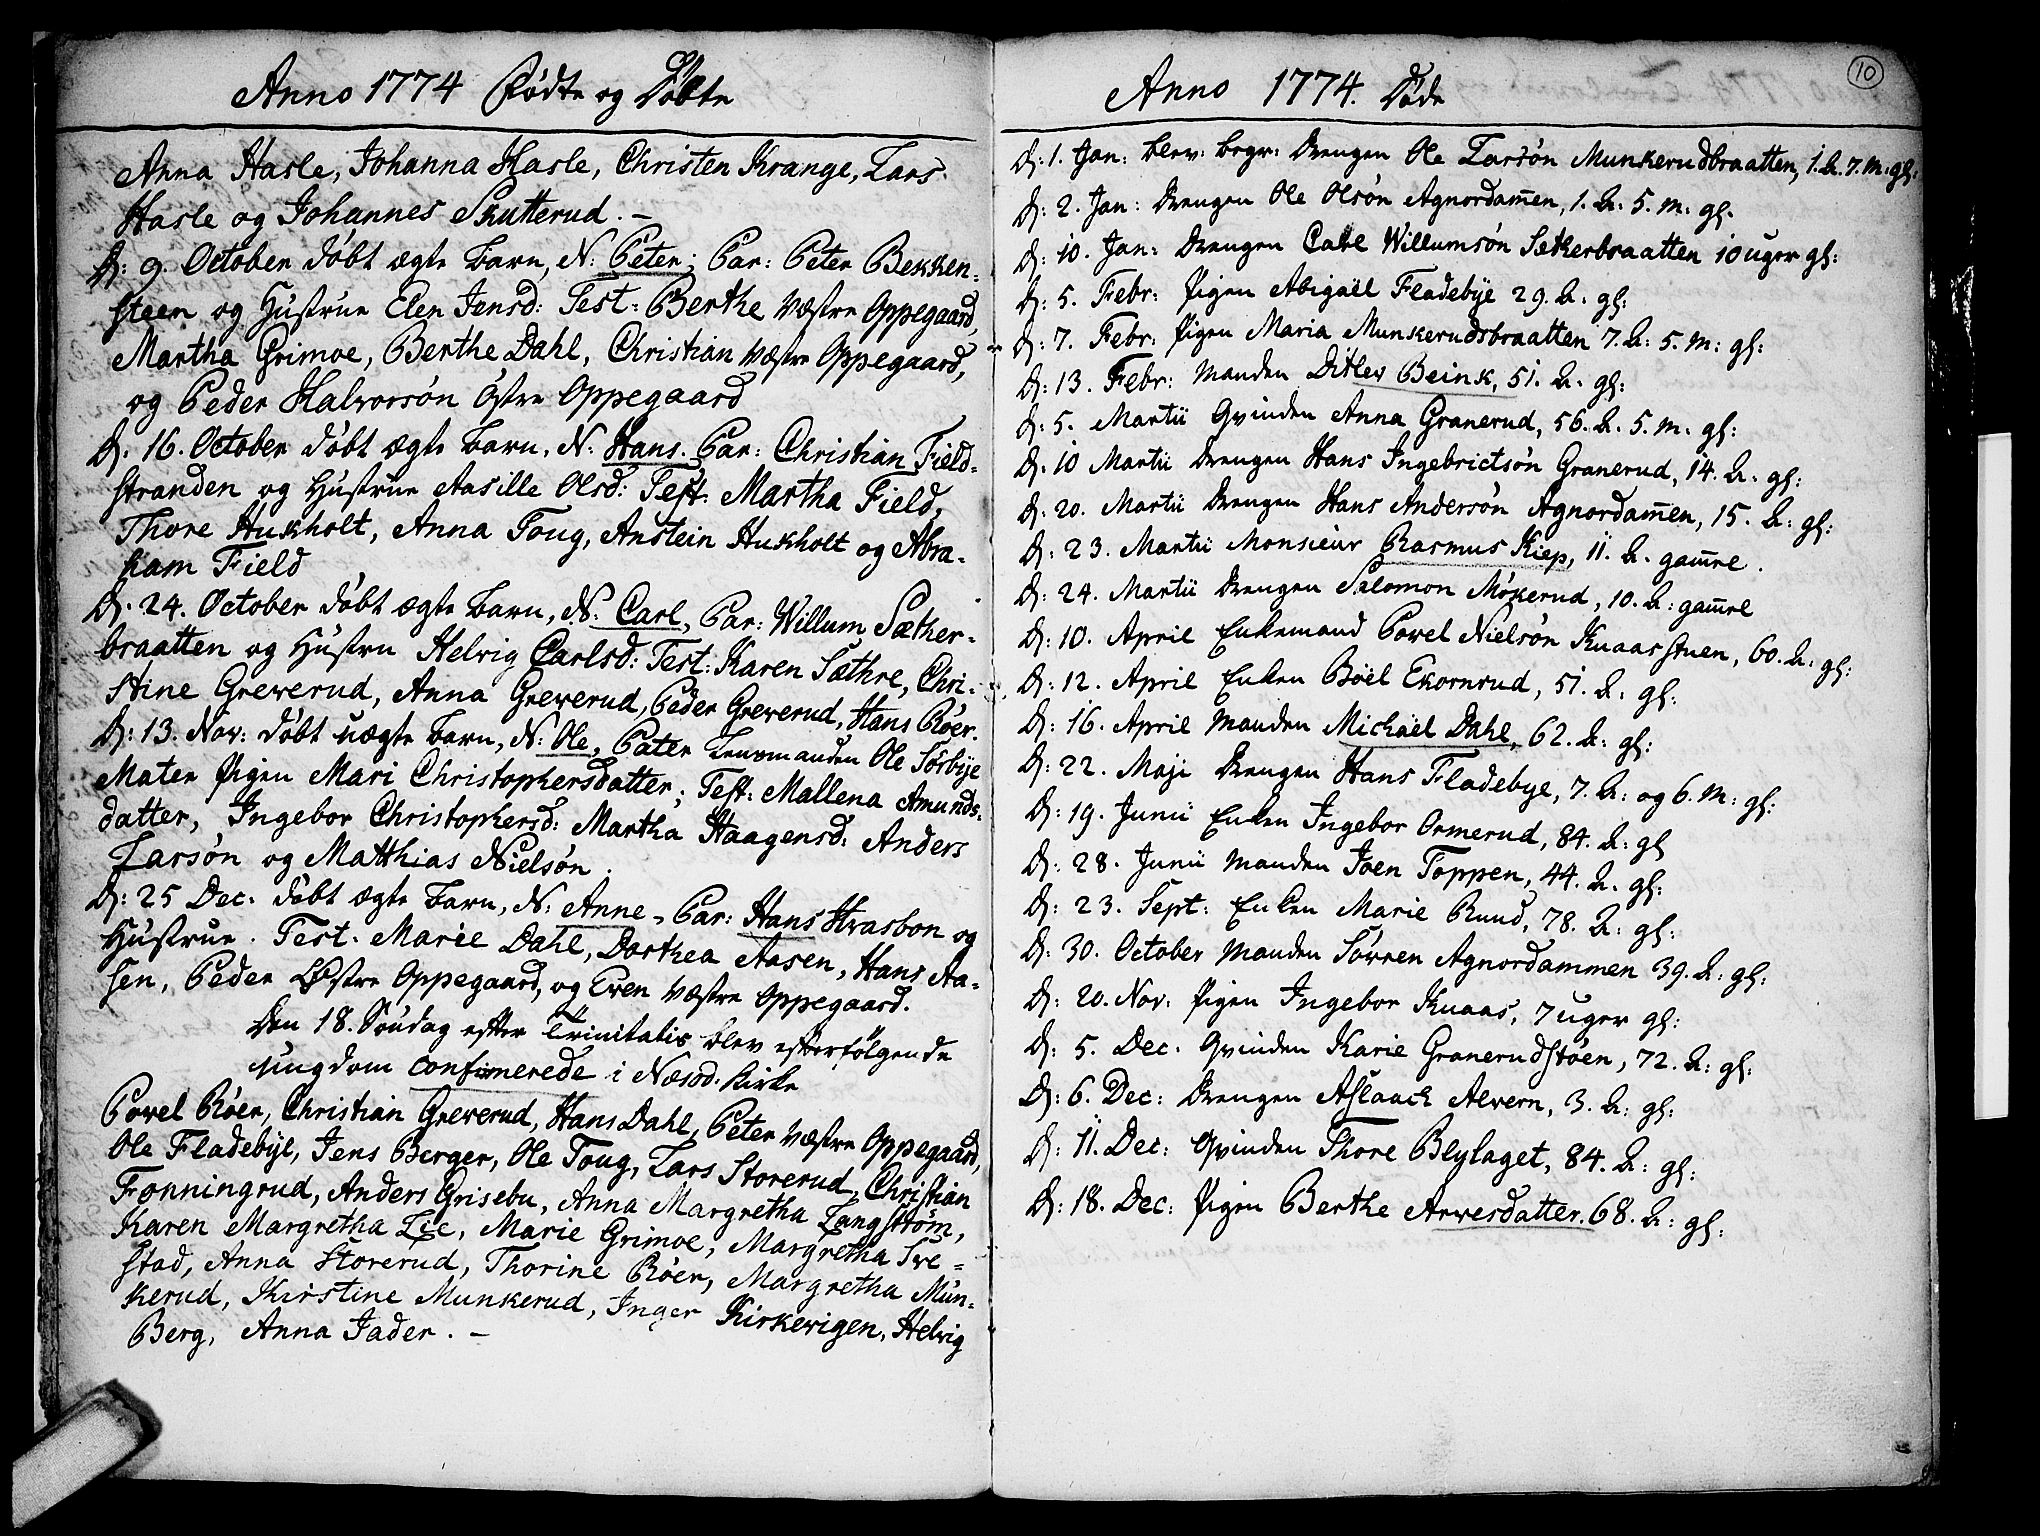 Anno 1774 Födte og Döbte
Anna Hasle, Johanna Hasle, Christen Krange, Lars
Hasle og Johannes Skutterud. –
D: 9 October döbt ægte Barn, N: Peter; Par: Peter Bekken-
steen og Hustrue Elen Jensd: Test: Berthe Væstre Oppegaard,
Martha Grimoe, Berthe Dahl, Christian Væstre Oppegaard,
og Peder Halvorsön Östre Oppegaard
D. 16. October döbt ægte Barn, N: Hans. Par: Christian Field-
stranden og Hustrue Aasille Olsd: Test: Martha Field,
Thore Hukholt, Anna Toug, Anstein Hukholt og Abra-
ham Field
D. 24. October döbt ægte Barn, N: Carl, Par: Willum Sæther-
braatten og Hustru Helvig Carlsd: Test: Karen Sæthre, Chri-
stine Greverud, Anna Greverud, Peder Greverud, Hans Röer.
D: 13. Nov: döbt uægte Barn, N: Ole, Pater Lensmanden Ole Sörbÿe
Mater Pigen Mari Christophersdatter; Test: Mallena Amunds-
datter, Ingebor Christophersd: Martha Haagensd: Anders
Larsön og Matthias Nielsön.
D: 25 Dec. döbt ægte Barn, N: Anne, Par: Hans Hvasbon og
Hustrue. Test. Marie Dahl, Dorthea Aasen, Hans Aa-
sen, Peder Östre Oppegaard, og Even Væstre Oppegaard.
Den 18. Söndag efter Trinitatis blev efterfölgende
ungdom confirmerede i Næsod. Kirke
Povel Röer, Christian Greverud, Hans Dahl, Peter Væstre Oppegaard,
Ole Fladebÿe, Jens Berger, Ole Toug, Lars Storerud, Christian
Fonningrud, Anders Grisebu, Anna Margretha Langström,
Karen Margretha Lie, Marie Grimoe, Margretha Sve-
stad, Anna Storerud, Thorine Röer, Margretha Mun-
kerud, Kirstine Munkerud, Inger Kirkevigen, Helvig
Berg, Anna Jader. –
10
Anno 1774. Döde
D: 1. Jan: blev begr: Drengen Ole Larsön Munkerudbraatten, 1. A. 7. M: gl:
D: 2. Jan: Drengen Ole Olsön Agnordam̄en, 1. A: 5. M: gl.
D: 10. Jan: Drengen Carl Willumsön Setherbraatten 10 uger gl:
D: 5. Febr: Pigen Abigaël Fladebÿe 29. A: gl:
D: 7. Febr: Pigen Maria Munkerudsbraatten 7. A: 5. M: gl:
D: 13. Febr: Manden Ditlev Beink, 51. A. gl:
D: 5. Martii Qvinden Anna Granerud, 56. A. 5. M. gl:
D: 10 Martii Drengen Hans Ingebrictsön Granerud, 14. A. gl:
D: 20. Martii Drengen Hans Andersön Agnordam̄en, 15. A: gl:
D: 23. Martii Monsieur Rasmus Kiep, 11. A. gam̄el.
D: 24. Martii Drengen Salomon Mökerud, 10. A: gam̄el
D: 10. April Enkemand Povel Nielsön Knaasstuen, 60. A: gl:
D: 12. April Enken Böel Ekornrud, 51. A: gl:
D: 16. April Manden Michaël Dahl, 62. A: gl:
D: 22. Maji Drengen Hans Fladebye, 7. A: og 6. M: gl:
D: 19. Junii Enken Ingebor Ormerud, 84. A: gl
D: 28. Junii Manden Joen Toppen, 44. A. gl:
D: 23. Sept: Enken Marie Ruud, 78. A: gl:
D: 30. October Manden Sövren Agnordammen 39. A: gl:
D: 20. Nov: Pigen Ingebor Knaas, 7 uger gl:
D: 5. Dec. Qvinden Karie Granerudstöen, 72. A: gl:
D: 6. Dec: Drengen Aslaach Alvern, 3. A: gl:
D: 11. Dec: Qvinden Thore Blylaget, 84. A: gl:
D: 18. Dec: Pigen Berthe Arvesdatter. 68. A: gl: